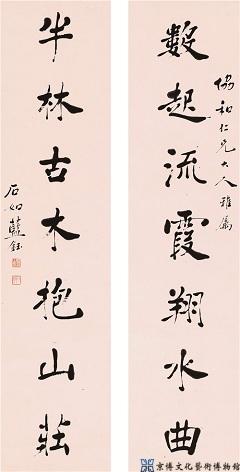 數起流霞翔水曲
協和仁兄大人雅屬
半林古木抱山莊
石如
京博文化藝術博物館